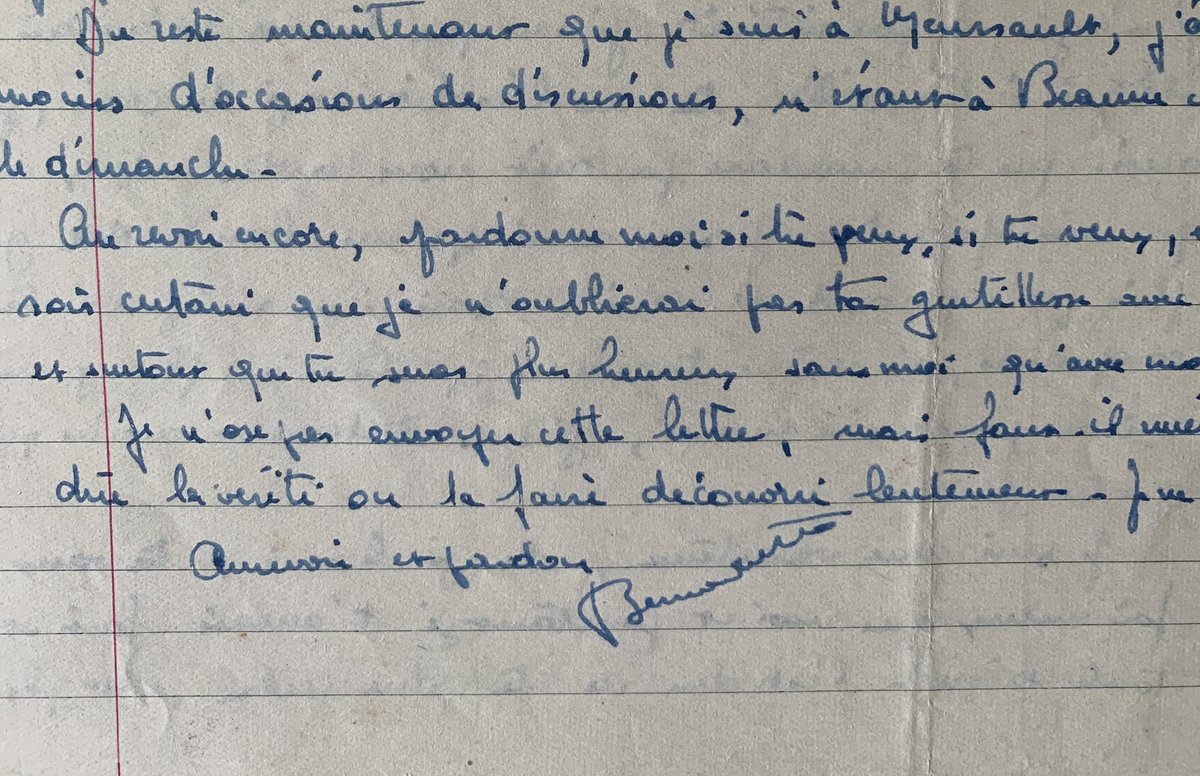 Du reste maintenant que je suis à Meursault, j'a
moins d'occasions de discussions, n'étant à Beaune
le dimanche.
Au revoir encore, pardonne moi si tu peux, si tu veux,
sois certain que je n'oublierai pas ta gentillesse avec
et surtout que tu seras plus heureux sans moi qu'avec mo
Je n'ose pas envoyer cette lettre, mais faut-il mie
dire la vérité ou la faire découvrir lentement. Je ne
Aurevoir et pardon
Bernadette